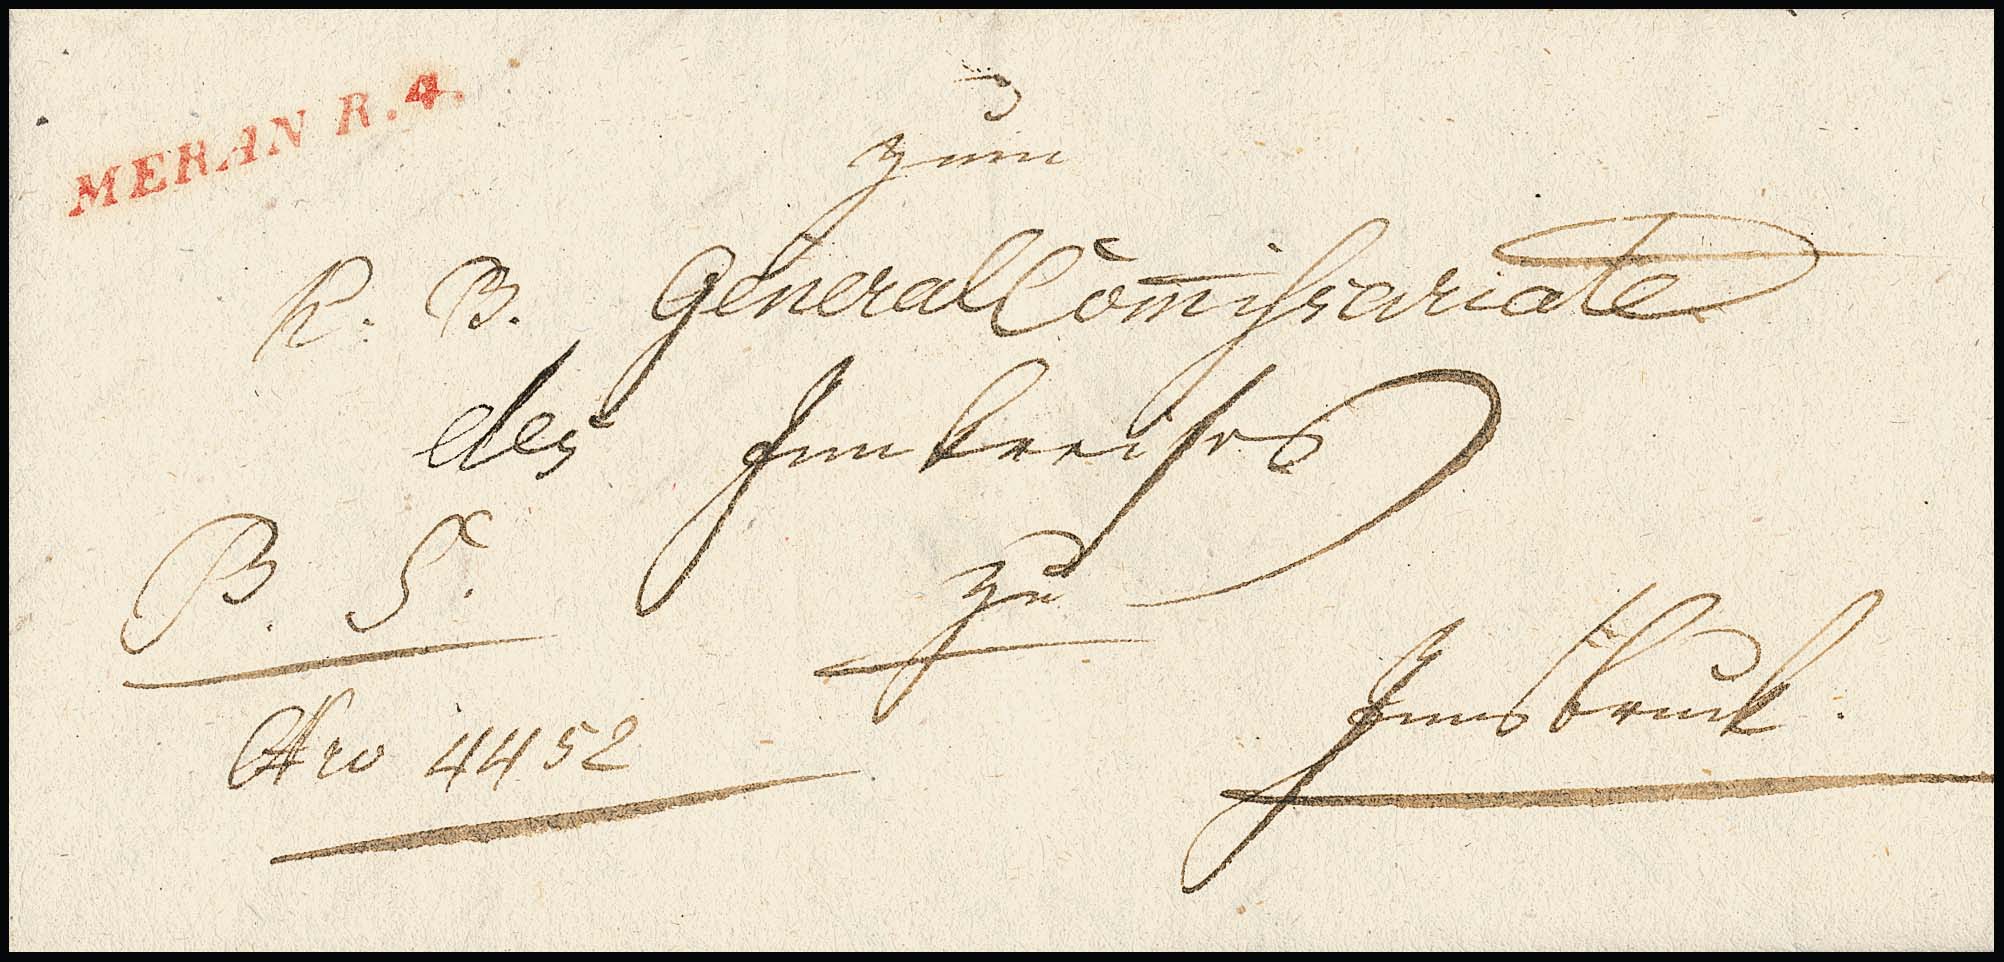 MERAN R.4.
zum
K. B. General Com̅issariate
des Innkreises
B. S.
zu
Innsbruck.
Nro 4452